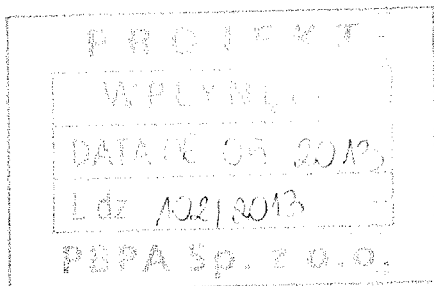 PROJEKT
WPŁYNĘŁO
DATA 05 2013
L.dz 102/2013
PBPA Sp. z o.o.